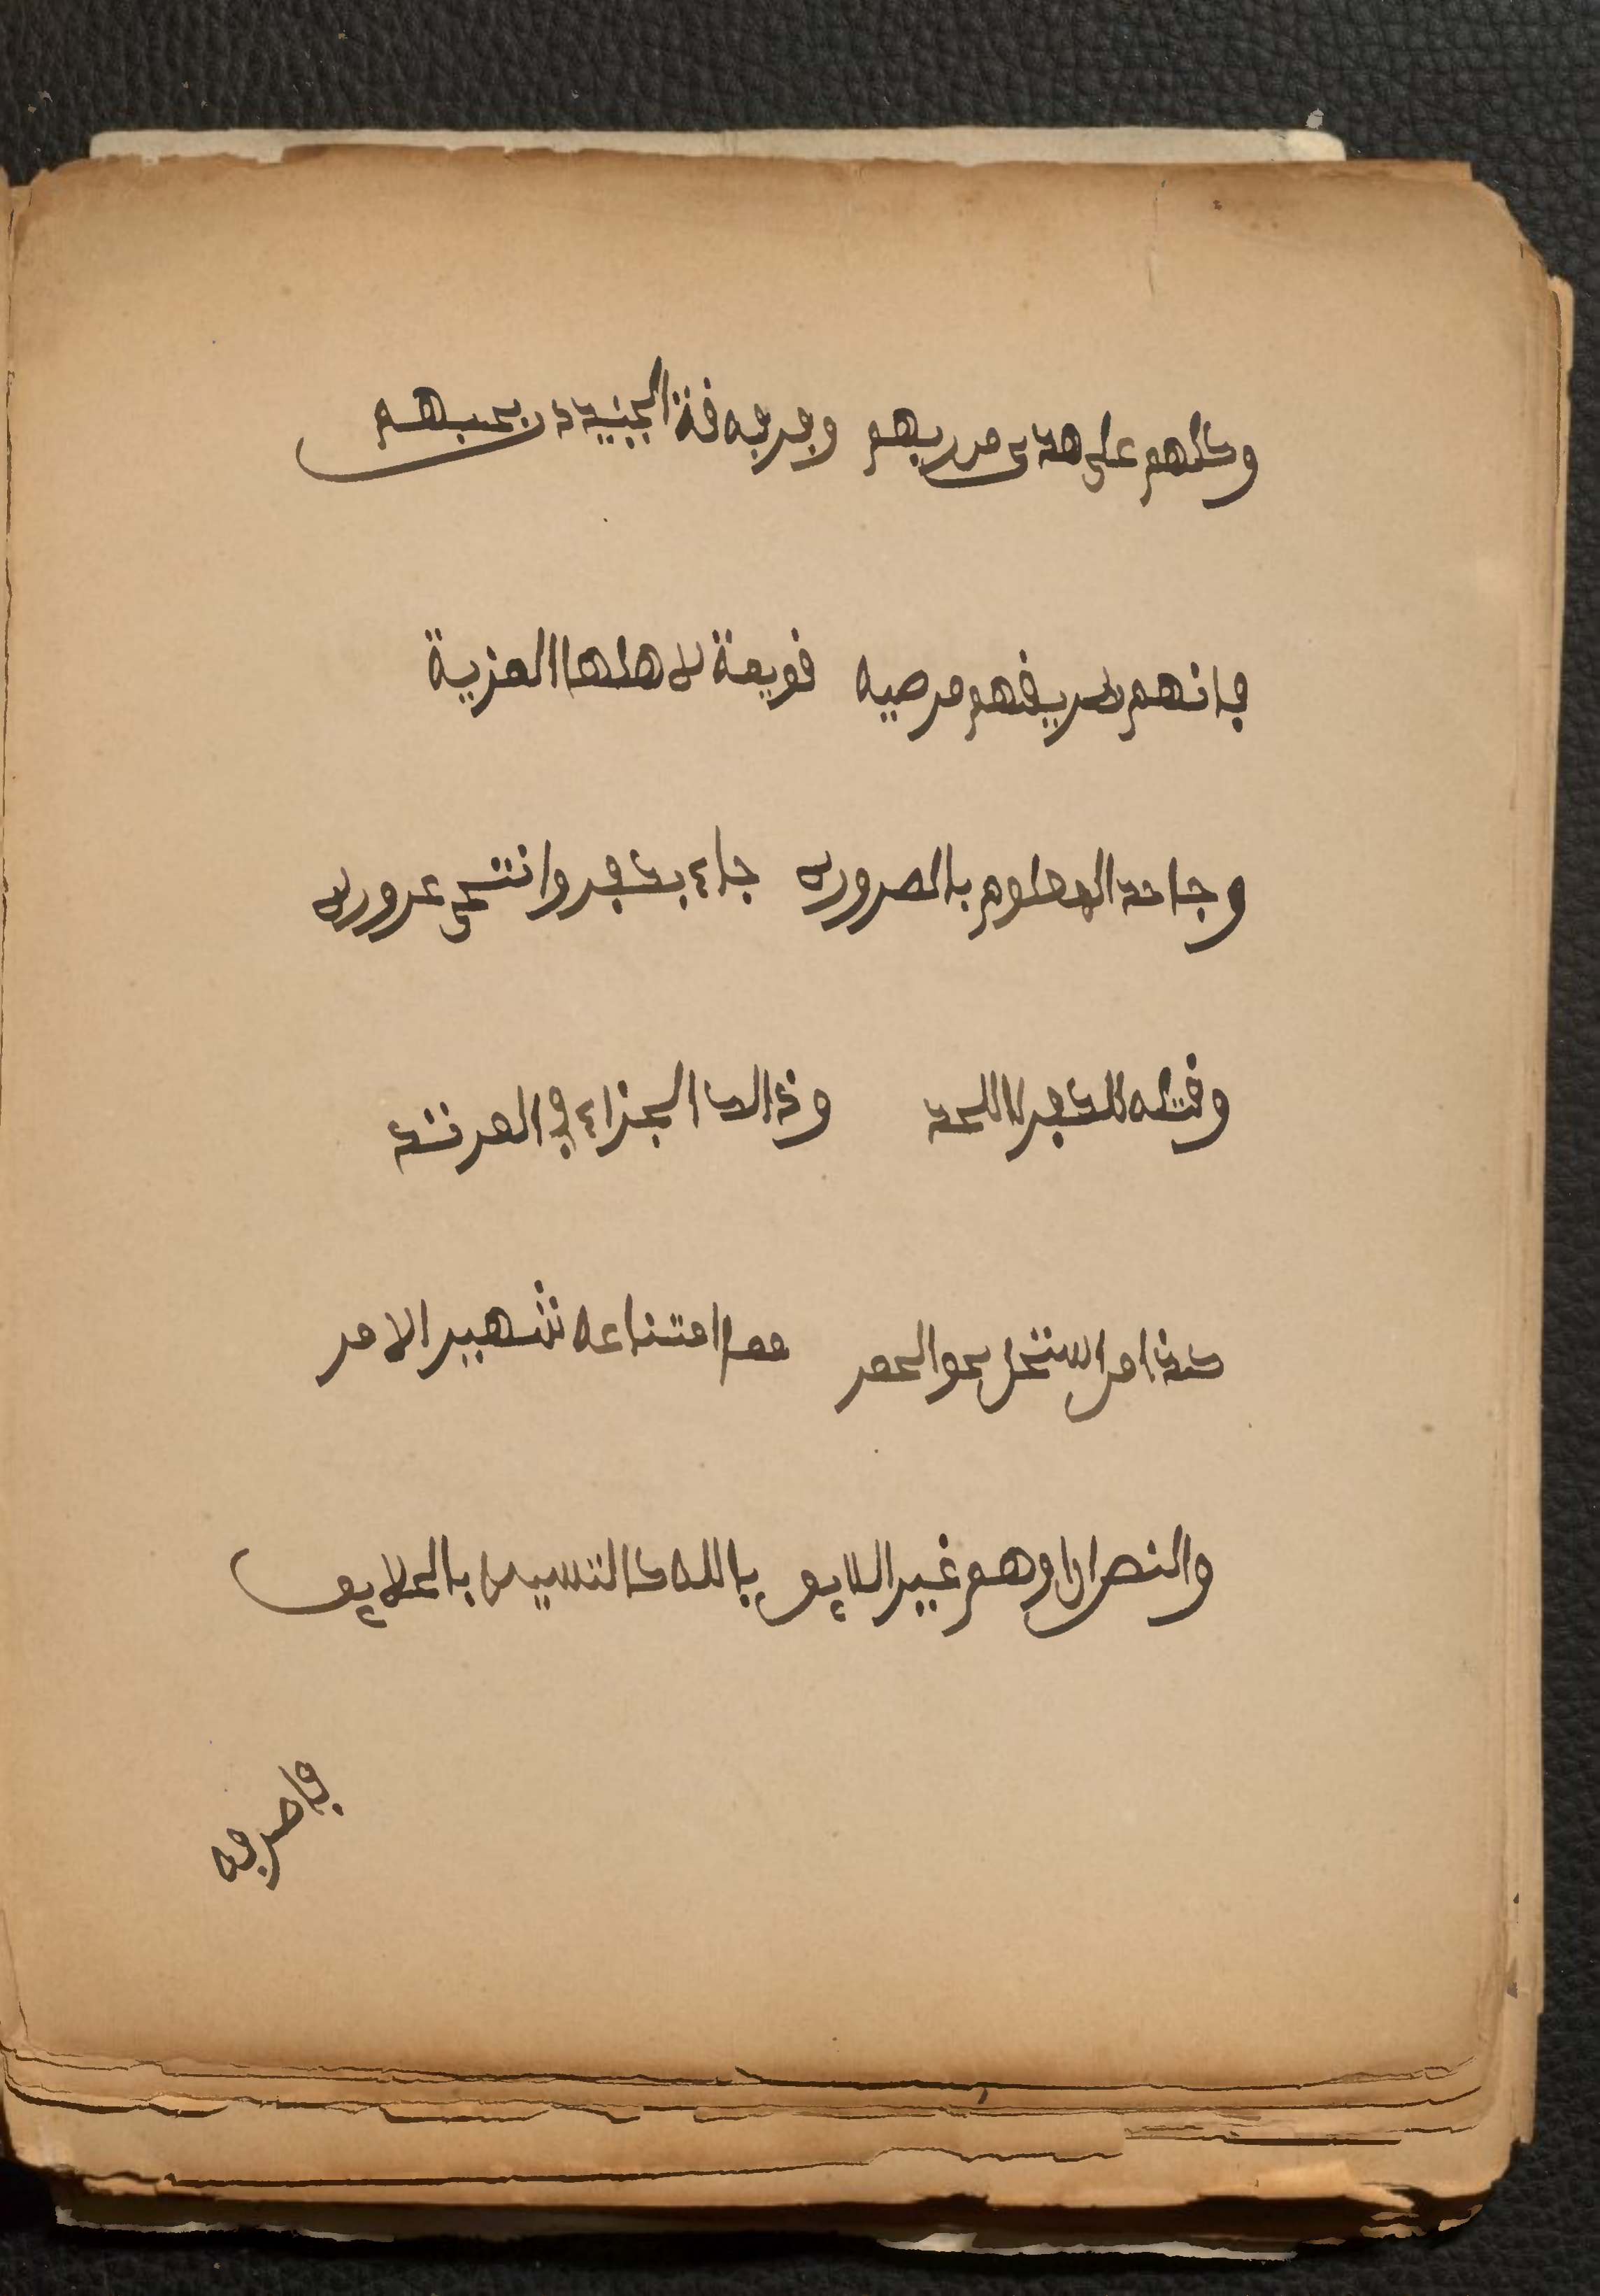 وكلهم على هدى من ربهم وفرفة الجنيد دن بحبهم
فانهم طريقهم مرضيه قويمة لاهلها المزية
وجاحد المعلوم بالضروره جاء بكفر وانتحى غروره
وقتله للكفر لا للحد وذالك الجزاء في المرتد
كذا من استحل نحو الخمر مما امتناعه شهير الامر
والنص ان اوهم غير اللايق بالله كالتشبيه بالخلايق
فاصرفه